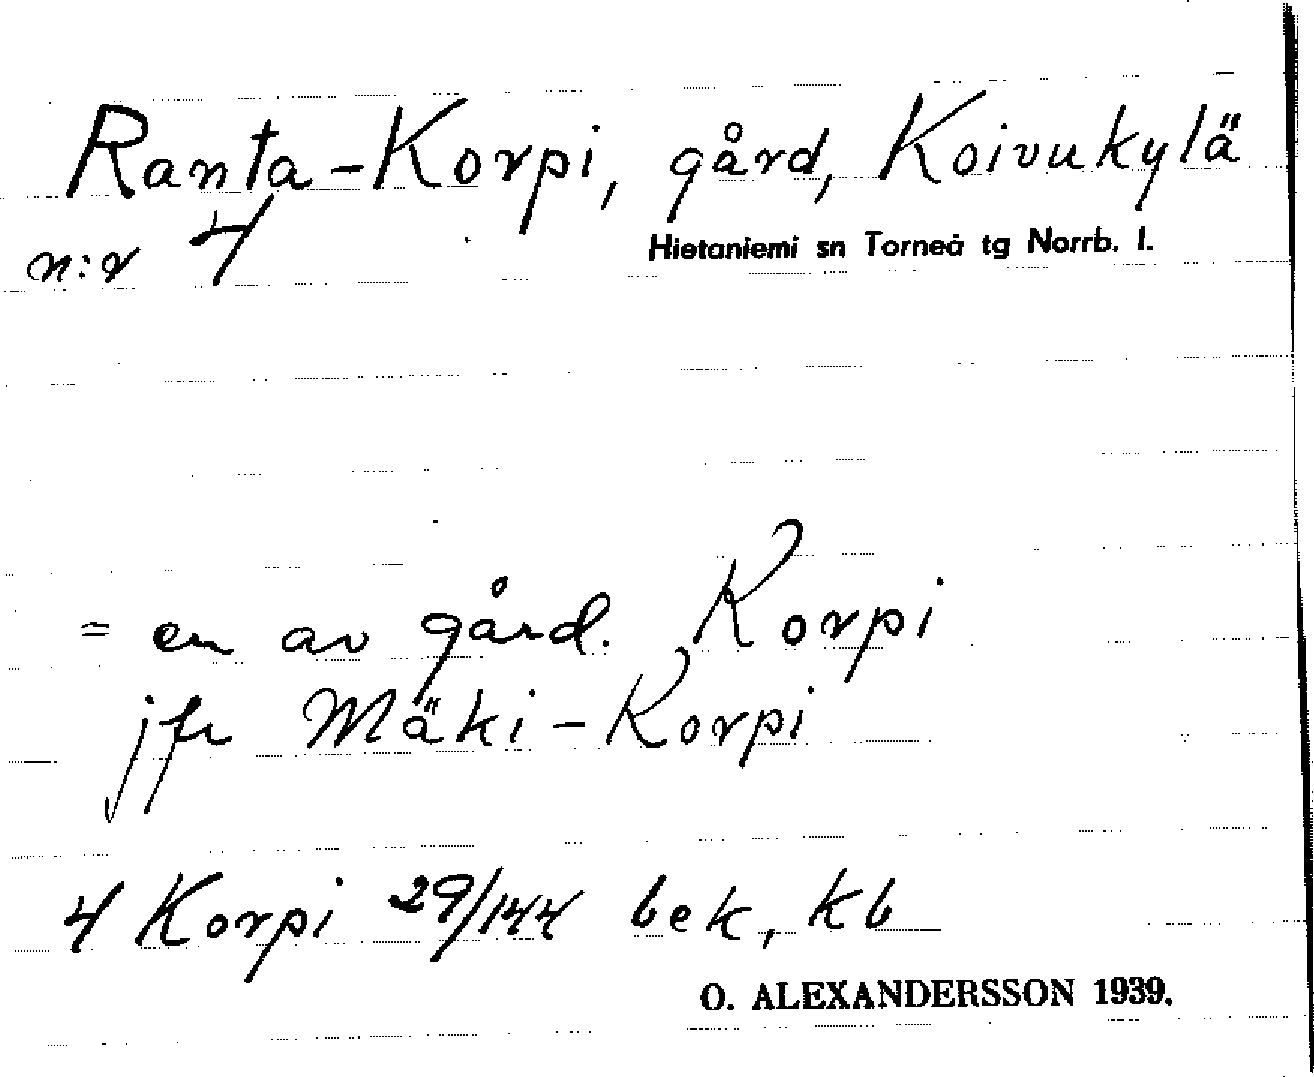 Ranta-Korpi, gård, Koivukylä
n:r 4
Hietaniemi sn Torneå tg Norrb. l.
= en av gård. Korpi
jfr Mäki-Korpi
4 Korpi 29/144 bek, kb
O. ALEXANDERSSON 1939.